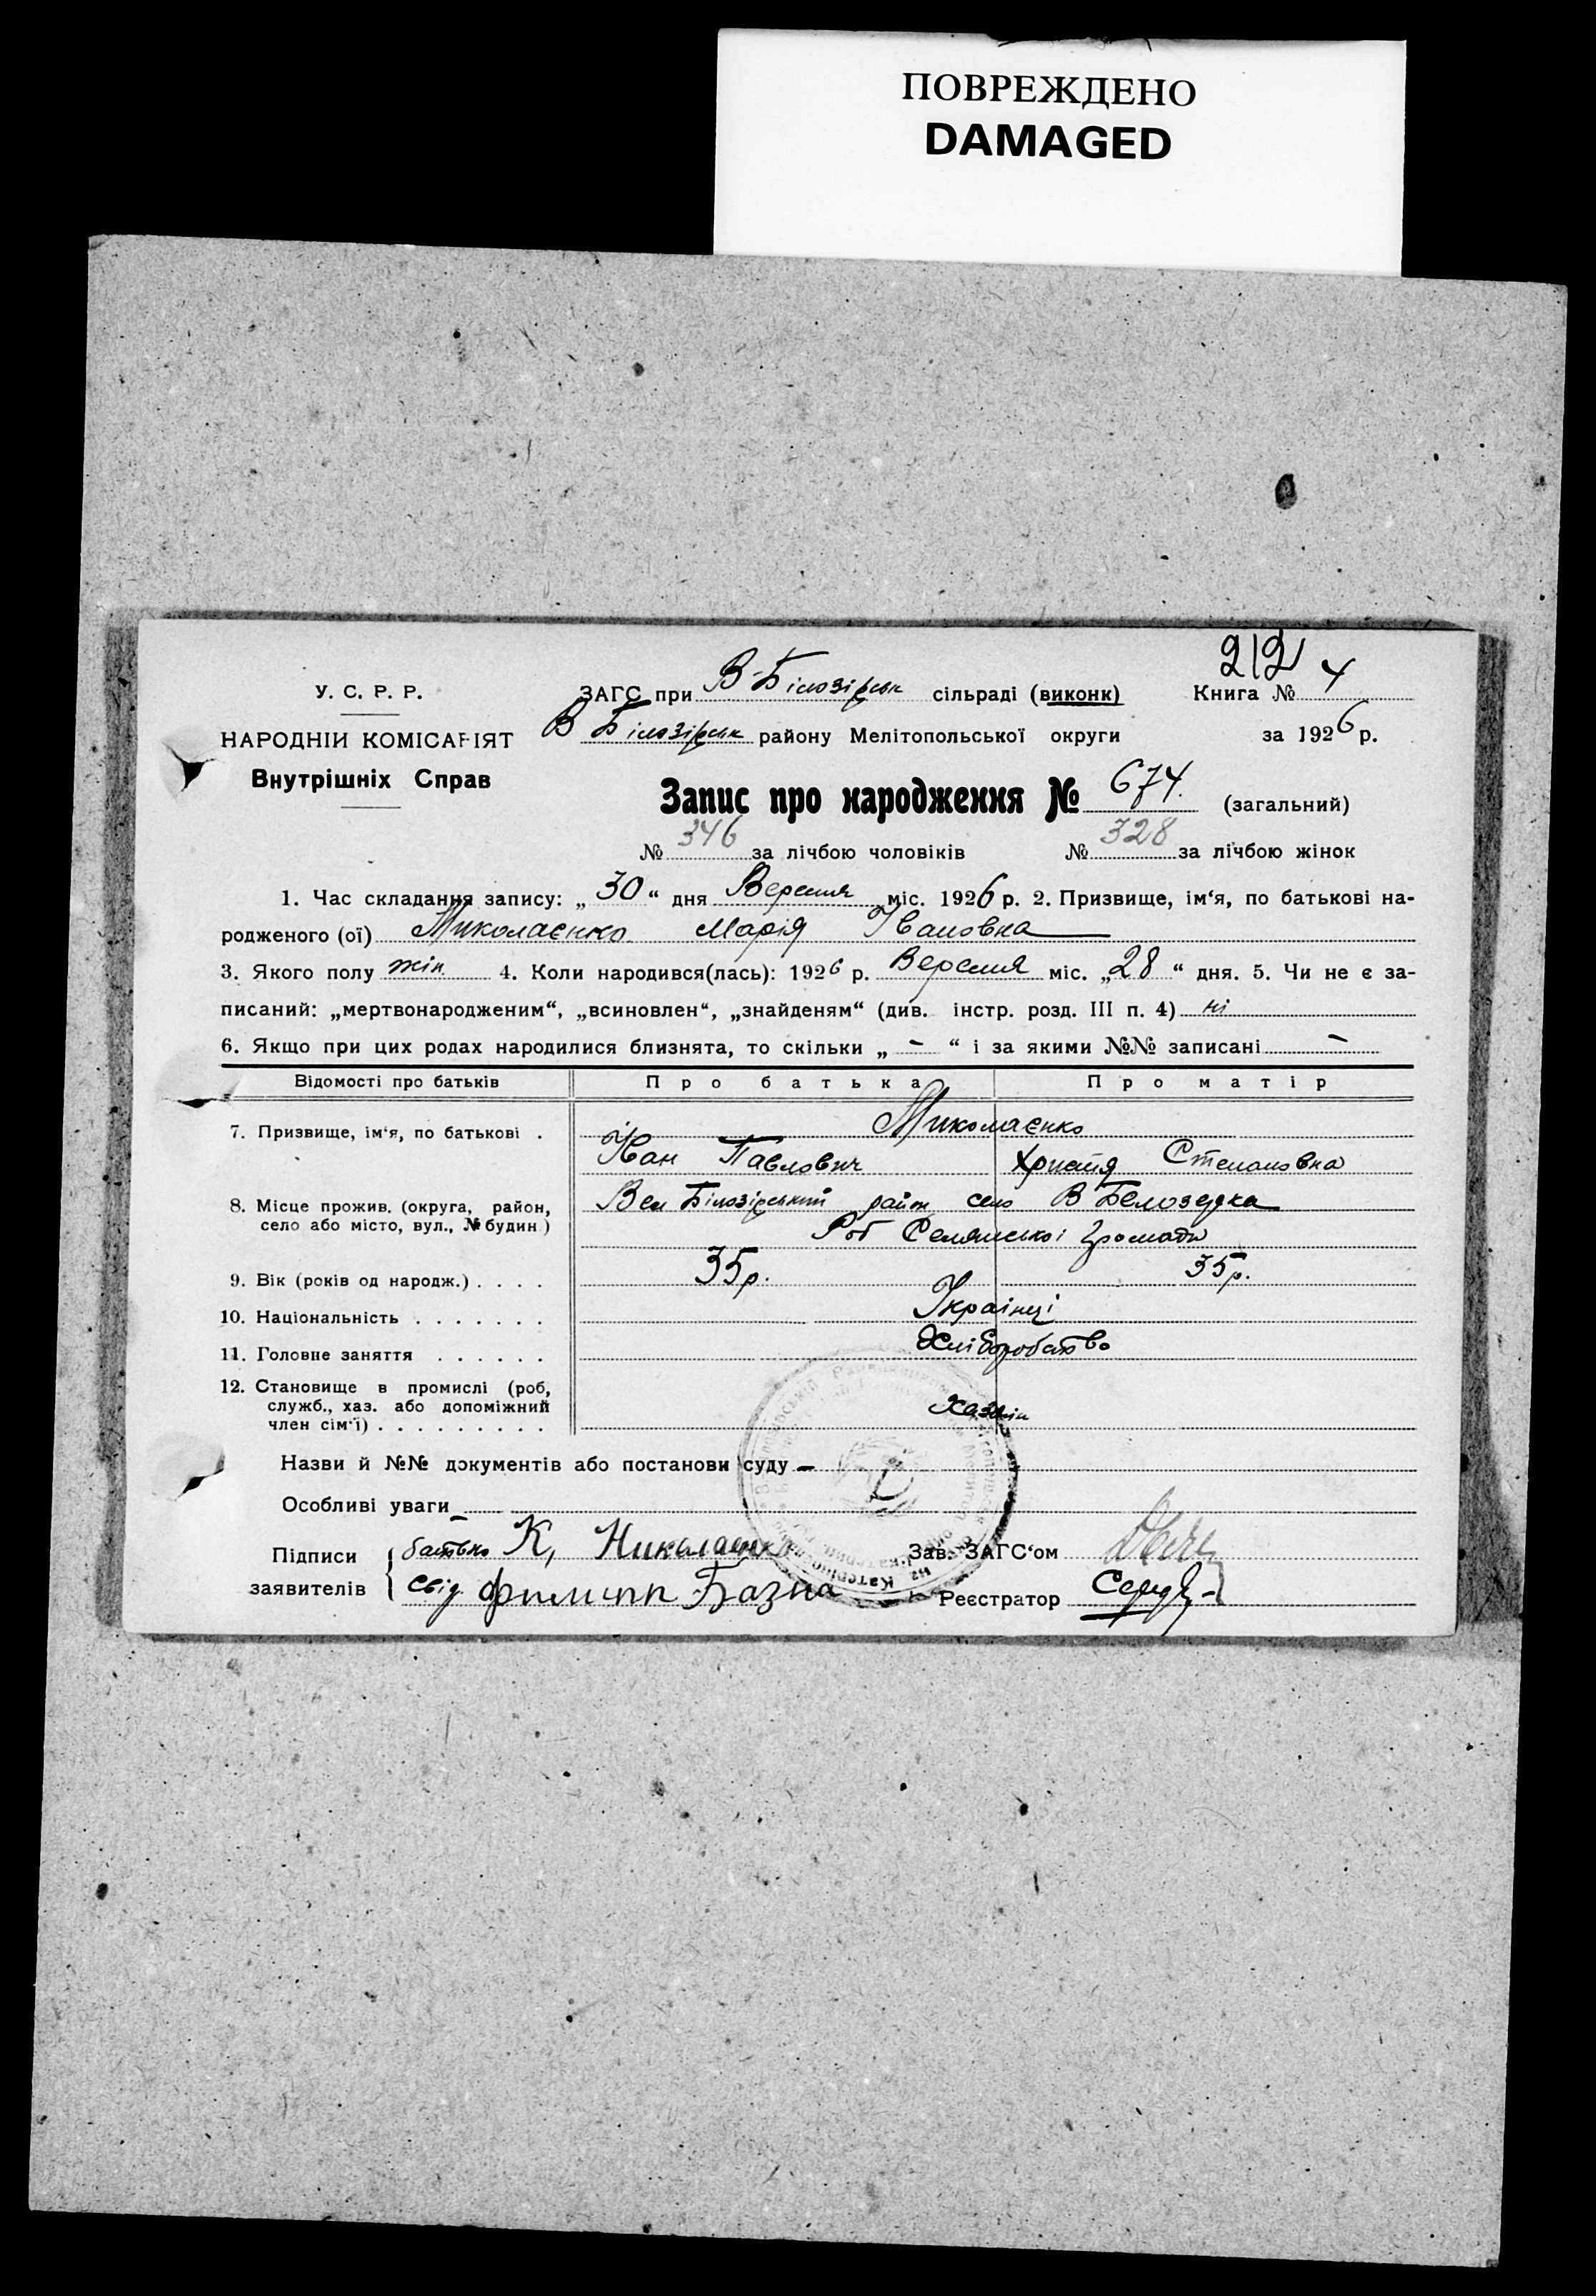 ПОВРЕЖДЕНО
DAMAGED
212
У. С. Р. Р.
ЗАГС при В-Білозірськ сільраді (виконк) Книга № 4
НАРОДНІЙ КОМІСАРІЯТ
В Білозірськ району Мелітопольської округи за 1926 р.
Внутрішніх Справ
Запис про народження № 674. (загальний)
№ 346 за лічбою чоловіків № 328 за лічбою жінок
1. Час складання запису: „ 30 “ дня Вересня міс. 1926 р. 2. Призвище, ім‘я, по батькові на-
родженого (ої) Миколаєнко Марія Івановна
3. Якого полу жін 4. Коли народився(лась): 1926 р. Вересня міс. „ 28 “ дня. 5. Чи не є за-
писаний: „мертвонародженим“, „всиновлен“, „знайденям“ (див. інстр. розд. III п. 4) ні
6. Якщо при цих родах народилися близнята, то скільки „ – “ і за якими №№ записані –
Відомості про батьків Про батька Про матір
7. Призвище, ім‘я, по батькові . Миколаєнко
Іван Павлович Христя Степановна
8. Місце прожив. (округа, район, Вел Білозірський район село В Белозерка
село або місто, вул., № будин.) Селянської громади
9. Вік (років од народж.) . . . . 35 р. 35 р.
10. Національність . . . . . . . Українці
11. Головне заняття . . . . . . Хліборобство
12. Становище в промислі (роб,
служб., хаз. або допоміжний Хазяїн
член сім‘ї) . . . . . . . . .
Назви й №№ документів або постанови суду –
Особливі уваги –
Підписи батько К, Николаенко Зав. ЗАГС‘ом
заявителів свід Филипп Базна Реєстратор